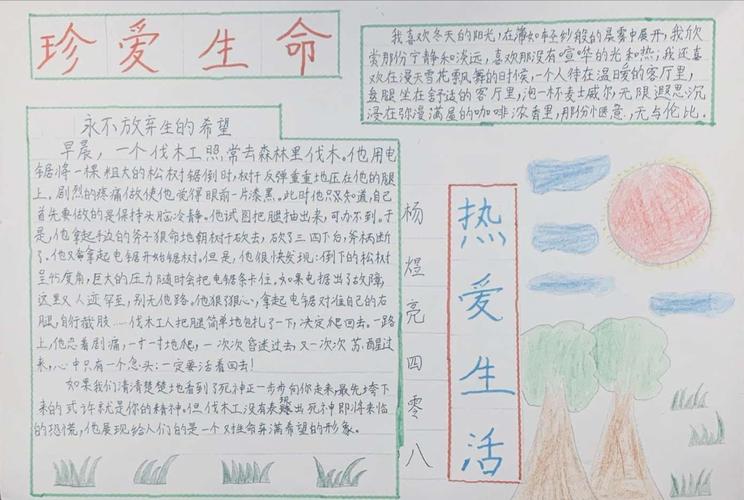 珍爱生命
我喜欢冬天的阳光，在薄如轻纱般的晨雾中展开，我欣
赏那份宁静和淡远，喜欢那没有喧哗的光和热；我还喜
欢在漫天雪花飘舞的时候，一个人待在温暖的客厅里，
盘腿坐在舒适的客厅里，泡一杯麦士威尔，无限遐思沉
浸在弥漫满屋的咖啡浓香里，那份惬意，无与伦比.
永不放弃生的希望
早晨，一个伐木工照常去森林里伐木。他用电
锯将一棵粗大的松树锯倒时，树干反弹重重地压在他的腿
上。剧烈的疼痛做使他觉得眼前一片漆黑。此时他只知道，自己
首先要做的是保持头脑冷静。他试图把腿抽出来，可办不到。于
是，他拿起手边的斧子狠命地朝树干砍去，砍了三四下后，斧柄断
了。他又拿起电锯开始锯树。但是，他很快发现：倒下的松树
呈45度角，巨大的压力随时会把电锯条卡住。如果电锯出了故障，
这里又人迹罕至，别无他路。他狠了狠心，拿起电锯对准自己的右
腿，自行截肢……伐木工人把腿简单地包扎了一下，决定爬回去。一路
上，他忍着剧痛，一寸一寸地爬，一次次昏迷过去，又一次次苏醒过
来，心中只有一个念头：一定要活着回去！
如果我们清清楚楚地看到了死神正一步步向你走来，最先垮下
来的或许就是你的精神。但伐木工没有表现出死神即将来临
的恐慌，他展现给人们的是一个对生命充满希望的形象。
杨煜亮四零八
热爱生活